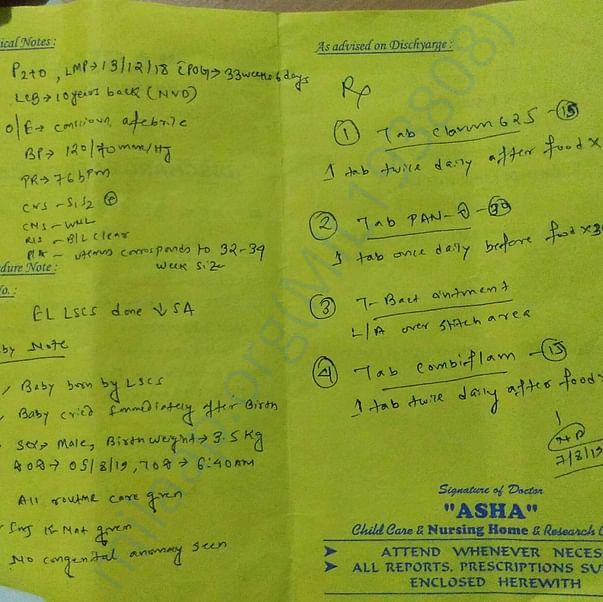 ical Notes :
P2+0, LMP→13/12/18 [POG→ 33weeks 6 days
LCB→10 years back (NVD)
O/E→ conscious, afebrile
BP→ 120/70mm/Hg
PR→76 bpm
CVS - S1S2 ⊕
CNS - WNL
R/S - B/L Clear
P/A - uterus corresponds to 32-34
week size
dure Note :
No. :
EL LSCS done ↓ SA
by Note
Baby born by LSCS
Baby cried immediately after Birth
Sex→ Male, Birth weight→ 3.5 Kg
DOB→ 05/8/19, TOB→ 6:40AM
All routine care given
Inj K Not given
No congenital anomaly seen
As advised on Dischyarge :
Rx
① Tab Clavum 625 - 15
1 tab twice daily after food ×
② Tab PAN-D - 30
1 tab once daily before food × 30
③ T-Bact ointment
L/A over stitch area
④ Tab Combiflam - 15
1 tab twice daily after food ×
7/8/19
Signature of Doctor
"ASHA"
Child Care & Nursing Home & Research C
➤ ATTEND WHENEVER NECES
➤ ALL REPORTS, PRESCRIPTIONS SU
ENCLOSED HEREWITH